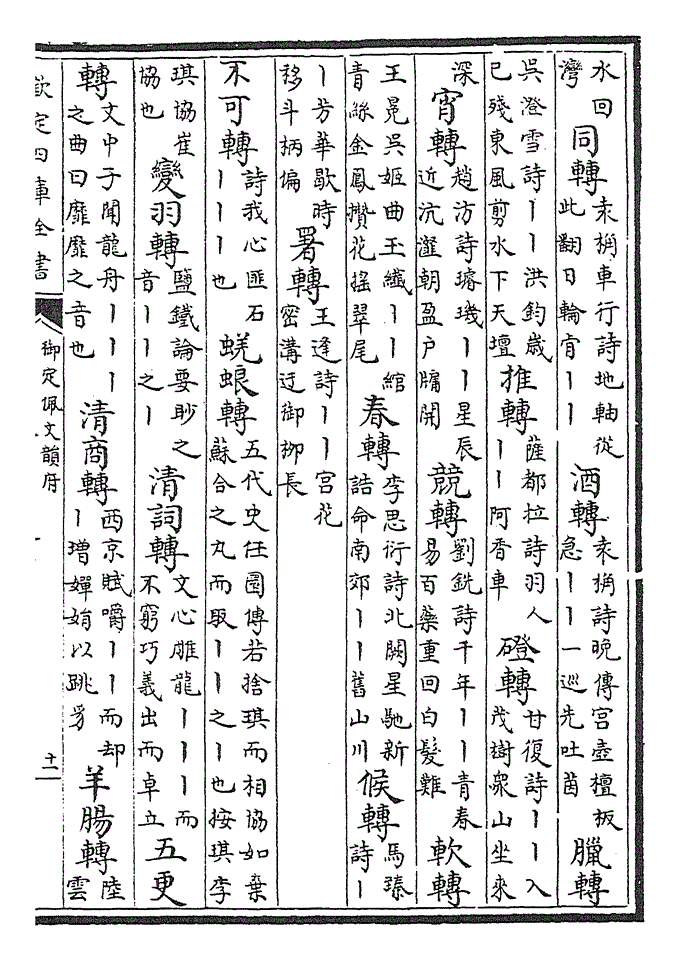 水回
灣
同轉
袁桷車行詩地軸從
此翻日輪宵丨丨
酒轉
袁桷詩晚傳宫壺檀板
急丨丨一巡先吐茵
臘轉
吳澄雪詩丨丨洪鈞歲
已殘東風剪水下天壇
推轉
薩都拉詩羽人
丨丨阿香車
磴轉
甘復詩丨丨入
茂樹衆山坐來
深
宵轉
趙汸詩璿璣丨丨星辰
近沆瀣朝盈户牖開
競轉
劉銑詩千年丨丨青春
易百藥重回白髮難
軟轉
王冕吳姬曲玉纖丨丨綰
青絲金鳳攢花摇翠尾
春轉
李思衍詩北闕星馳新
誥命南郊丨丨舊山川
候轉
馬臻
詩丨
丨芳華歇時
移斗柄偏
署轉
王逢詩丨丨宫花
密溝迂御柳長
不可轉
詩我心匪石
丨丨丨也
蜣蜋轉
五代史任圜傳若捨琪而相協如棄
蘇合之丸而取丨丨之丨也按琪李
琪協崔
協也
變羽轉
鹽鐵論要眇之
音丨丨之丨
清詞轉
文心雕龍丨丨丨而
不窮巧義出而卓立
五更
轉
文中子聞龍舟丨丨丨
之曲曰靡靡之音也
清商轉
西京賦嚼丨丨而却
丨增嬋娟以跳豸
羊腸轉
陸
雲
欽定四庫全書
御定佩文韻府
十一